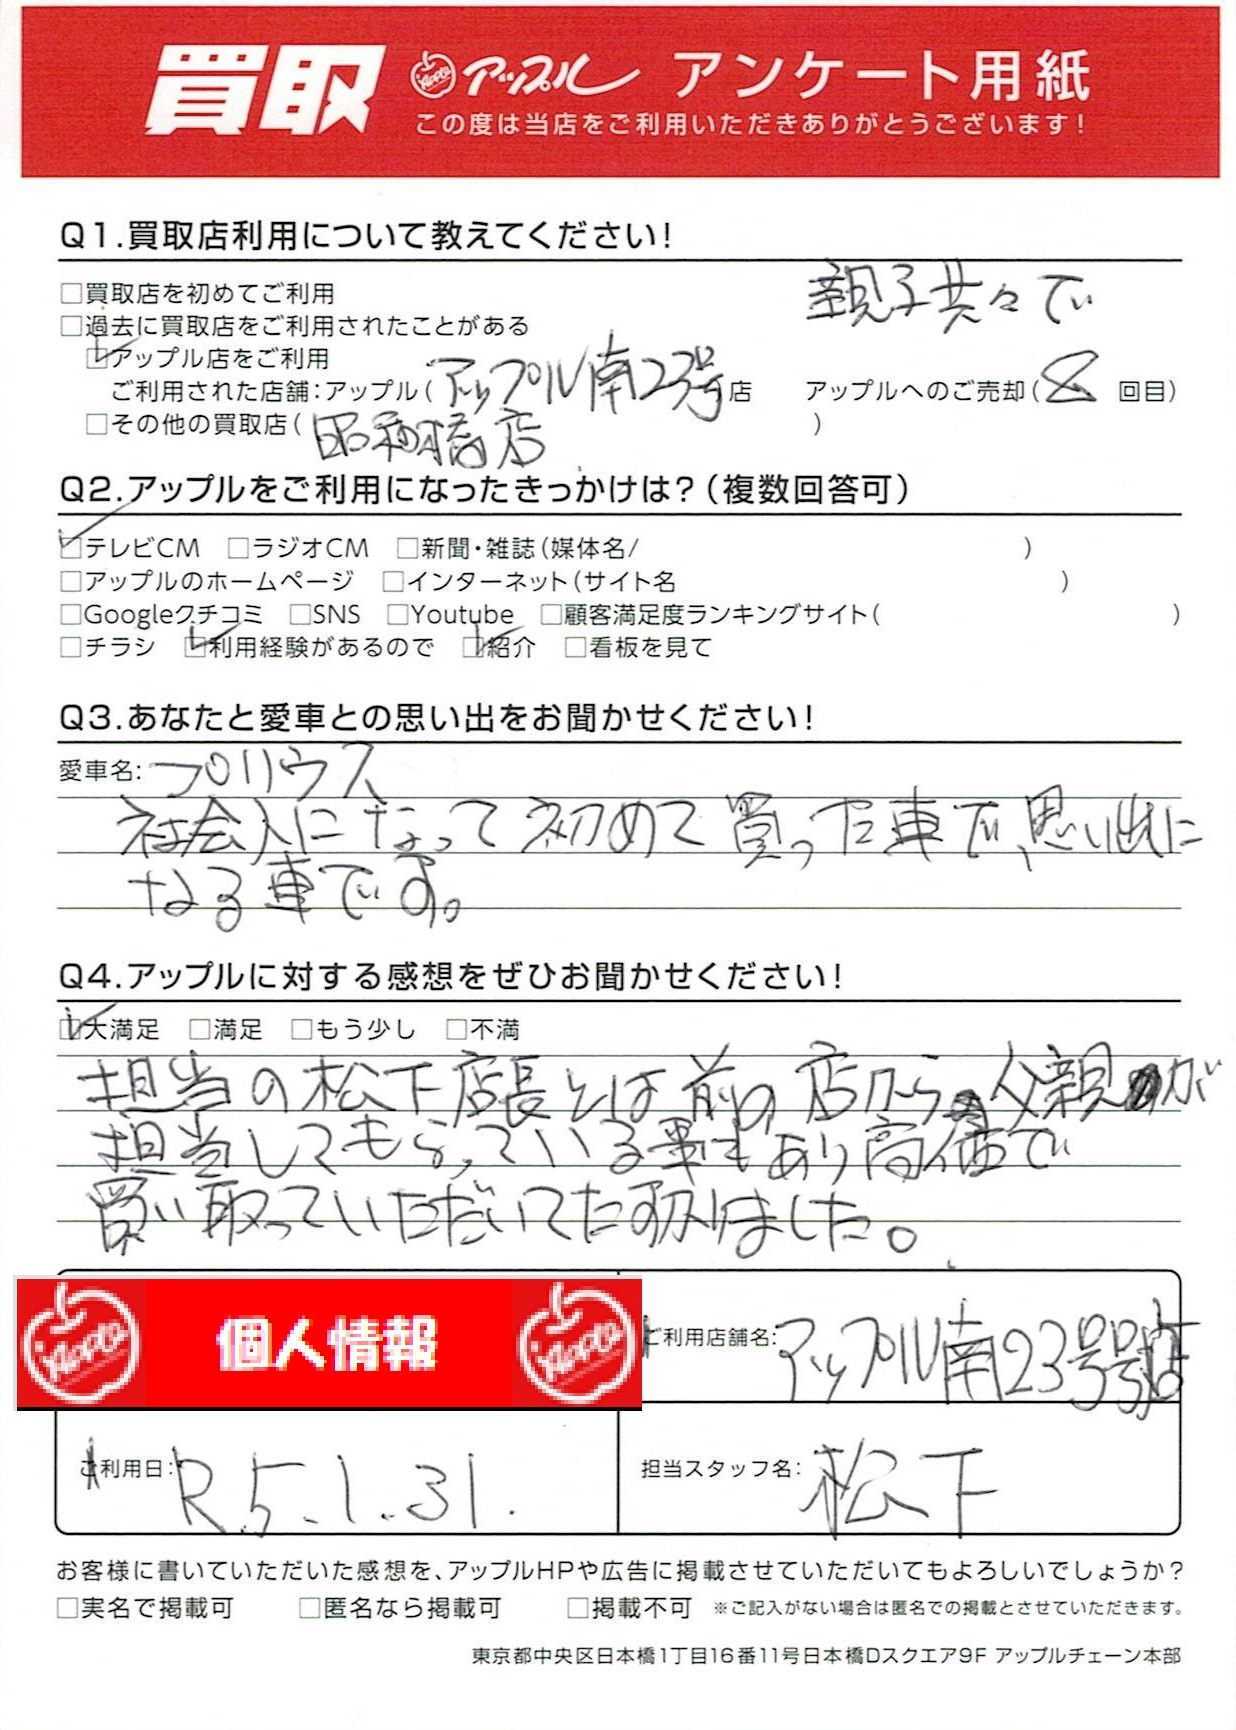 買取 アップル アンケート用紙
この度は当店をご利用いただきありがとうございます!
Q1.買取店利用について教えてください!
□買取店を初めてご利用
親子共々で
□過去に買取店をご利用されたことがある
□アップル店をご利用
ご利用された店舗:アップル(アップル南23号店 アップルへのご売却(8回目)
□その他の買取店(昭和橋店)
Q2.アップルをご利用になったきっかけは?(複数回答可)
□テレビCM □ラジオCM □新聞・雑誌(媒体名/ )
□アップルのホームページ □インターネット(サイト名 )
□Googleクチコミ □SNS □Youtube □顧客満足度ランキングサイト( )
□チラシ □利用経験があるので □紹介 □看板を見て
Q3.あなたと愛車との思い出をお聞かせください!
愛車名:プリウス
社会人になって初めて買った車で、思い出に
なる車です。
Q4.アップルに対する感想をぜひお聞かせください!
□大満足 □満足 □もう少し □不満
担当の松下店長とは前の店から父親が
担当してもらっている事もあり高価で
買い取っていただいてたすかりました。
Apple 個人情報 Apple
ご利用店舗名:アップル南23号号店
ご利用日:R.5.1.31.
担当スタッフ名:松下
お客様に書いていただいた感想を、アップルHPや広告に掲載させていただいてもよろしいでしょうか?
□実名で掲載可 □匿名なら掲載可 □掲載不可 ※ご記入がない場合は匿名での掲載とさせていただきます。
東京都中央区日本橋1丁目16番11号日本橋Dスクエア9F アップルチェーン本部